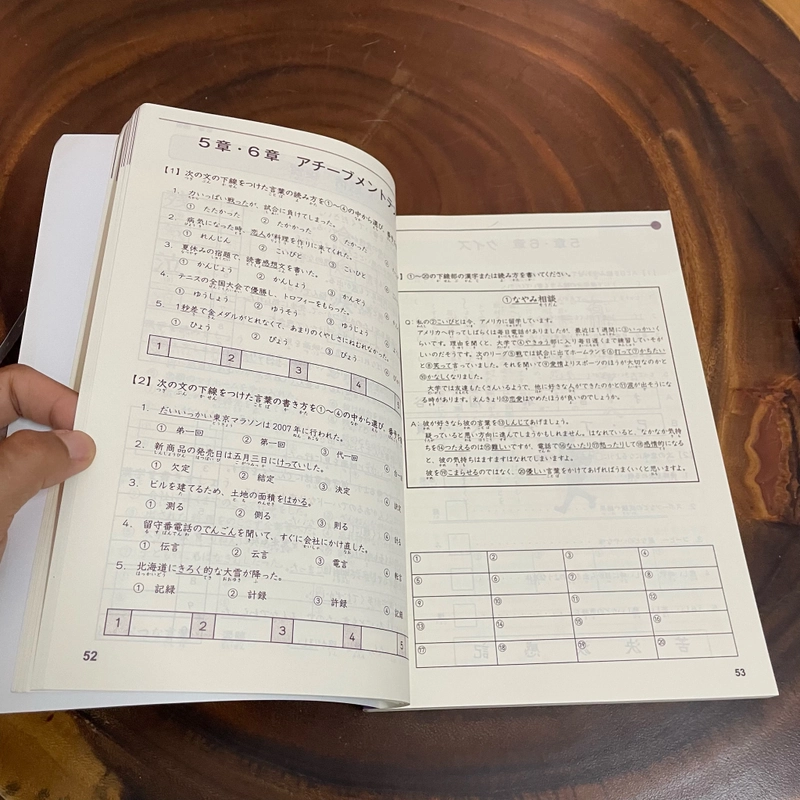 5章・6章 アチーブメントテ
【1】次の文の下線をつけた言葉の読み方を①〜④の中から選び、番号
1. 力いっぱい戦ったが、試合に負けてしまった。
① たたかった ② たかかった ③ たかった
2. 病気になった時、恋人が料理を作りに来てくれた。
① れんじん ② こいびと ③ こいひと
3. 夏休みの宿題で、読書感想文を書いた。
① かんじょう ② かんしょう ③ かんぞう
4. テニスの全国大会で優勝し、トロフィーをもらった。
① ゆうしょう ② ゆうそう ③ ゆうじょう
5. 1秒差で金メダルがとれなくて、あまりのくやしさにねむれなかった。
① ひょう ② びょう ③ ぴょう
1 2 3 4
【2】次の文の下線をつけた言葉の書き方を①〜④の中から選び、番号
1. だいいっかい東京マラソンは2007年に行われた。
① 弟一回 ② 第一回 ③ 代一回
2. 新商品の発売日は五月三日にけっていした。
① 欠定 ② 結定 ③ 決定
3. ビルを建てるため、土地の面積をはかる。
① 測る ② 側る ③ 則る
4. 留守番電話のでんごんを聞いて、すぐに会社にかけ直した。
① 伝言 ② 云言 ③ 電言
5. 北海道にきろく的な大雪が降った。
① 記録 ② 計録 ③ 許録 ④ 記緑
1 2 3 4 5
52
①〜⑳の下線部の漢字または読み方を書いてください。
①なやみ相談
Q 私の②こいびとは今、アメリカに留学しています。
アメリカへ行ってしばらくは毎日電話がありましたが、最近は1週間に③いっかいく
らいです。理由を聞くと、大学で④やきゅう部に入り毎日遅くまで練習していそが
しいのだそうです。次のリーグ⑤戦では試合に出てホームランを⑥打って⑦かちたい
と⑧笑って言っていました。それを聞いて⑨愛情よりスポーツのほうが大切なのかと
⑩かなしくなりました。
大学では友達もたくさんいるようで、他に好きな人ができたのかと⑪涙が出そうにな
る時があります。えんきょり⑫恋愛はやめたほうが良いのでしょうか。
A 彼が好きなら彼の言葉を⑬しんじてあげましょう。
疑っていると悪い方向に進んでしまうかもしれません。はなれていると、なかなか気持
ちを⑭つたえるのは⑮難しいですが、電話で⑯ないたり⑰怒ったりして⑱感情的になる
と、彼の気持ちはますますはなれてしまいますよ。
彼を⑲こまらせるのではなく、⑳優しい言葉をかけてあげればうまくいくと思いますよ。
① ② ③ ④
⑤ ⑥ ⑦ ⑧
⑨ ⑩ ⑪ ⑫
⑬ ⑭ ⑮ ⑯
⑰ ⑱ ⑲ ⑳
53